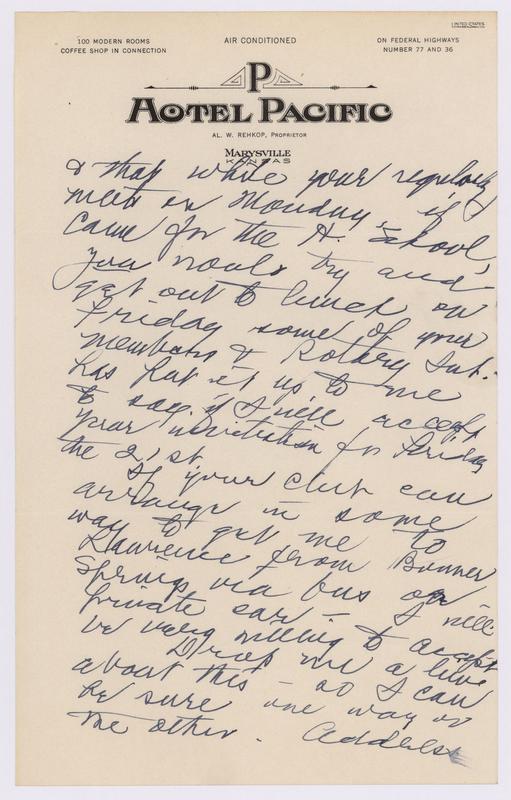 UNITED STATES
100 MODERN ROOMS
COFFEE SHOP IN CONNECTION
AIR CONDITIONED
ON FEDERAL HIGHWAYS
NUMBER 77 AND 36
P
HOTEL PACIFIC
AL. W. REHKOP, PROPRIETOR
MARYSVILLE
KANSAS
& that while your regularly
meet on Monday, if I
came for the H. School,
you would try and
get out to lunch on
Friday some of your
members & Rotary Int.
has put it up to me
to say if I will accept
your invitation for Friday
the 21st.
If your club can
arrange in some
way to get me to
Lawrence from Bonner
Springs via bus or
private car — I will
be very willing to accept
Drop me a line
about this — so I can
be sure one way or
the other. Address